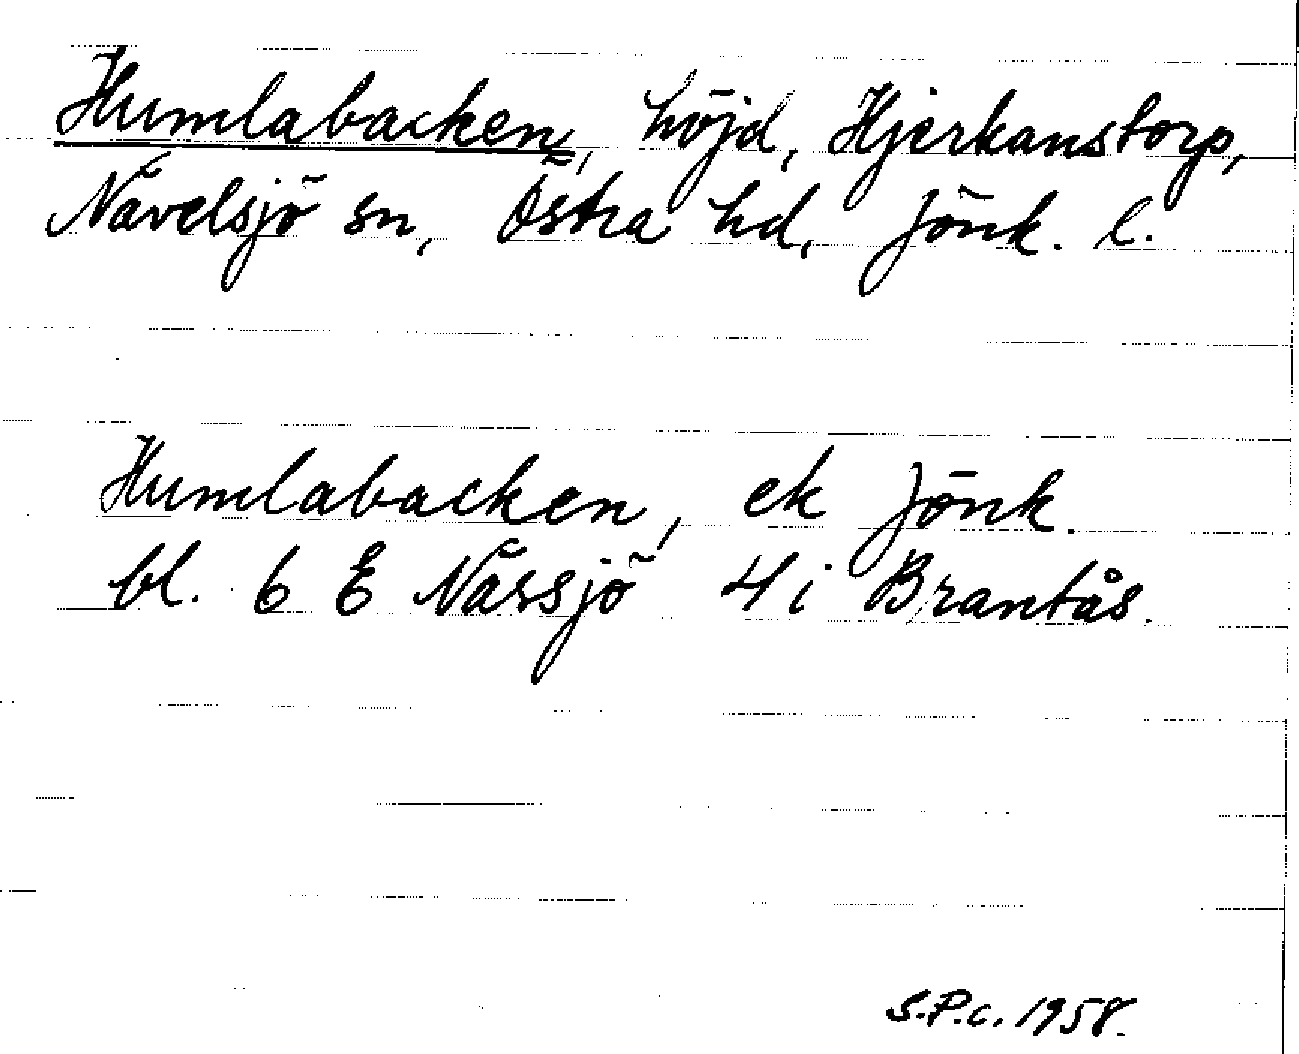 Humlabacken, höjd, Hjerkanstorp,
Nävelsjö sn, Östra hd, Jönk. l.
Humlabacken, ek Jönk.
bl. 6 E Nässjö 4i Brantås.
S.P.C. 1958.